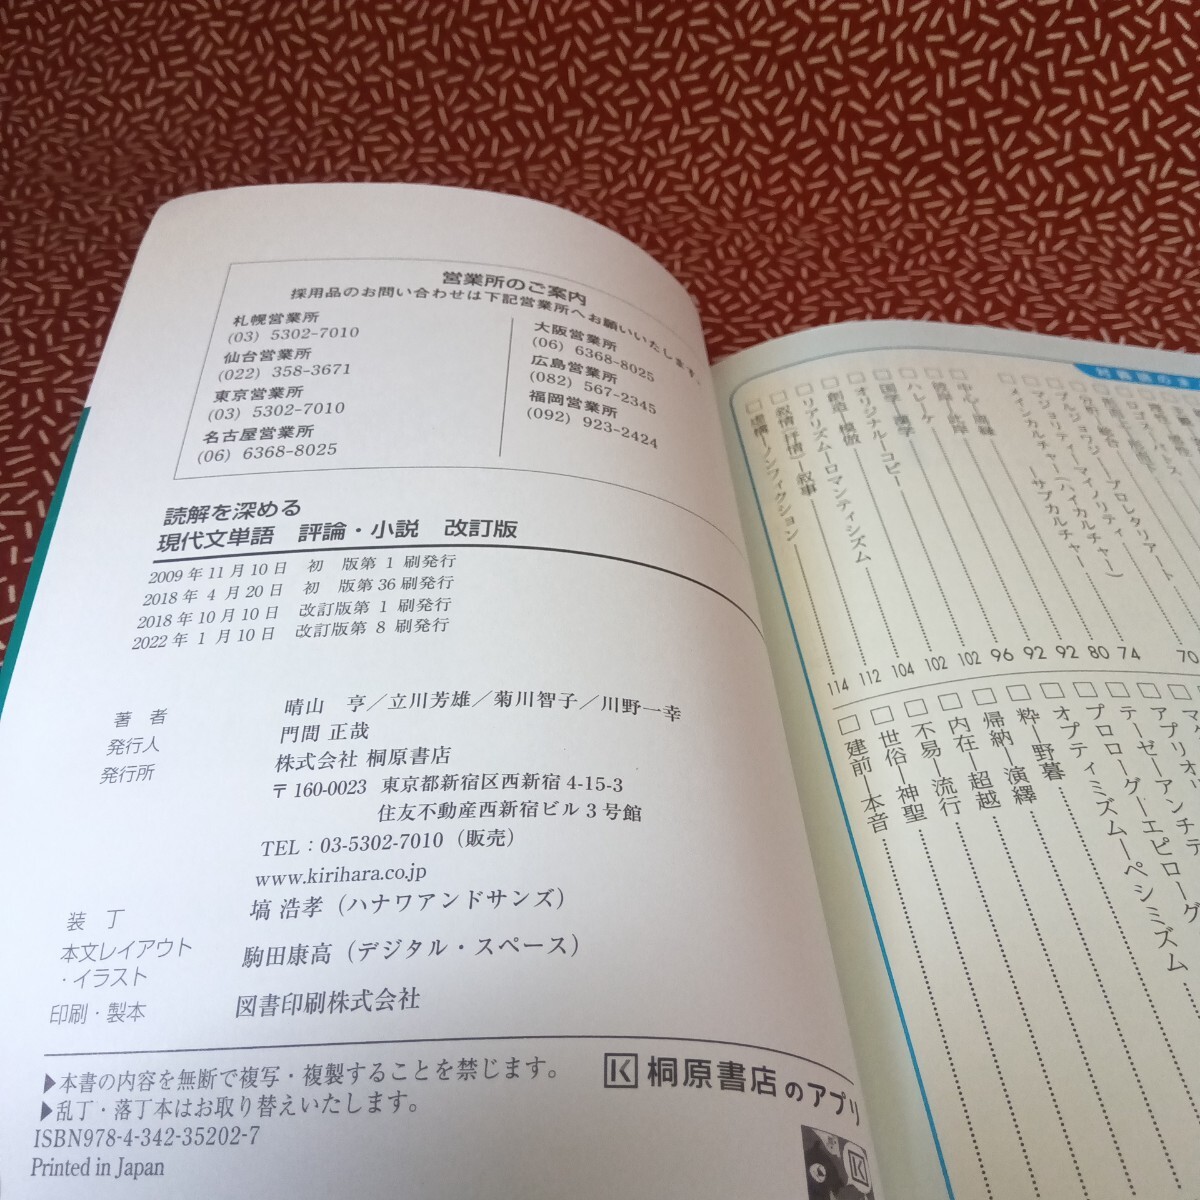 営業所のご案内
採用品のお問い合わせは下記営業所へお願いいたします。
札幌営業所
(03) 5302-7010
仙台営業所
(022) 358-3671
東京営業所
(03) 5302-7010
名古屋営業所
(06) 6368-8025
大阪営業所
(06) 6368-8025
広島営業所
(082) 567-2345
福岡営業所
(092) 923-2424
読解を深める
現代文単語 評論・小説 改訂版
2009年11月10日 初 版第 1 刷発行
2018年 4 月20日 初 版第36刷発行
2018年10月10日 改訂版第 1 刷発行
2022年 1 月10日 改訂版第 8 刷発行
著 者 晴山 亨／立川芳雄／菊川智子／川野一幸
発行人 門間 正哉
発行所 株式会社 桐原書店
〒160-0023 東京都新宿区西新宿 4-15-3
住友不動産西新宿ビル 3 号館
TEL：03-5302-7010（販売）
www.kirihara.co.jp
装 丁 塙 浩孝（ハナワアンドサンズ）
本文レイアウト
・イラスト 駒田康高（デジタル・スペース）
印刷・製本 図書印刷株式会社
▶本書の内容を無断で複写・複製することを禁じます。
▶乱丁・落丁本はお取り替えいたします。
ISBN978-4-342-35202-7
Printed in Japan
K 桐原書店のアプリ
K
対義語のま
□ブルジョワジー―プロレタリアート 74
□マジョリティ―マイノリティ 80
□メインカルチャー（ハイカルチャー）
―サブカルチャー 92
□中心―周縁 96
□彼岸―此岸 102
□ハレ―ケ 102
□国学―蘭学 104
□オリジナル―コピー
□創造―模倣 112
□リアリズム―ロマンティシズム 114
□叙情（抒情）―叙事
□虚構―ノンフィクション
□アプリオリ
□テーゼ―アンチテ
□プロローグ―エピローグ
□オプティミズム―ペシミズム
□粋―野暮
□帰納―演繹
□内在―超越
□不易―流行
□世俗―神聖
□建前―本音